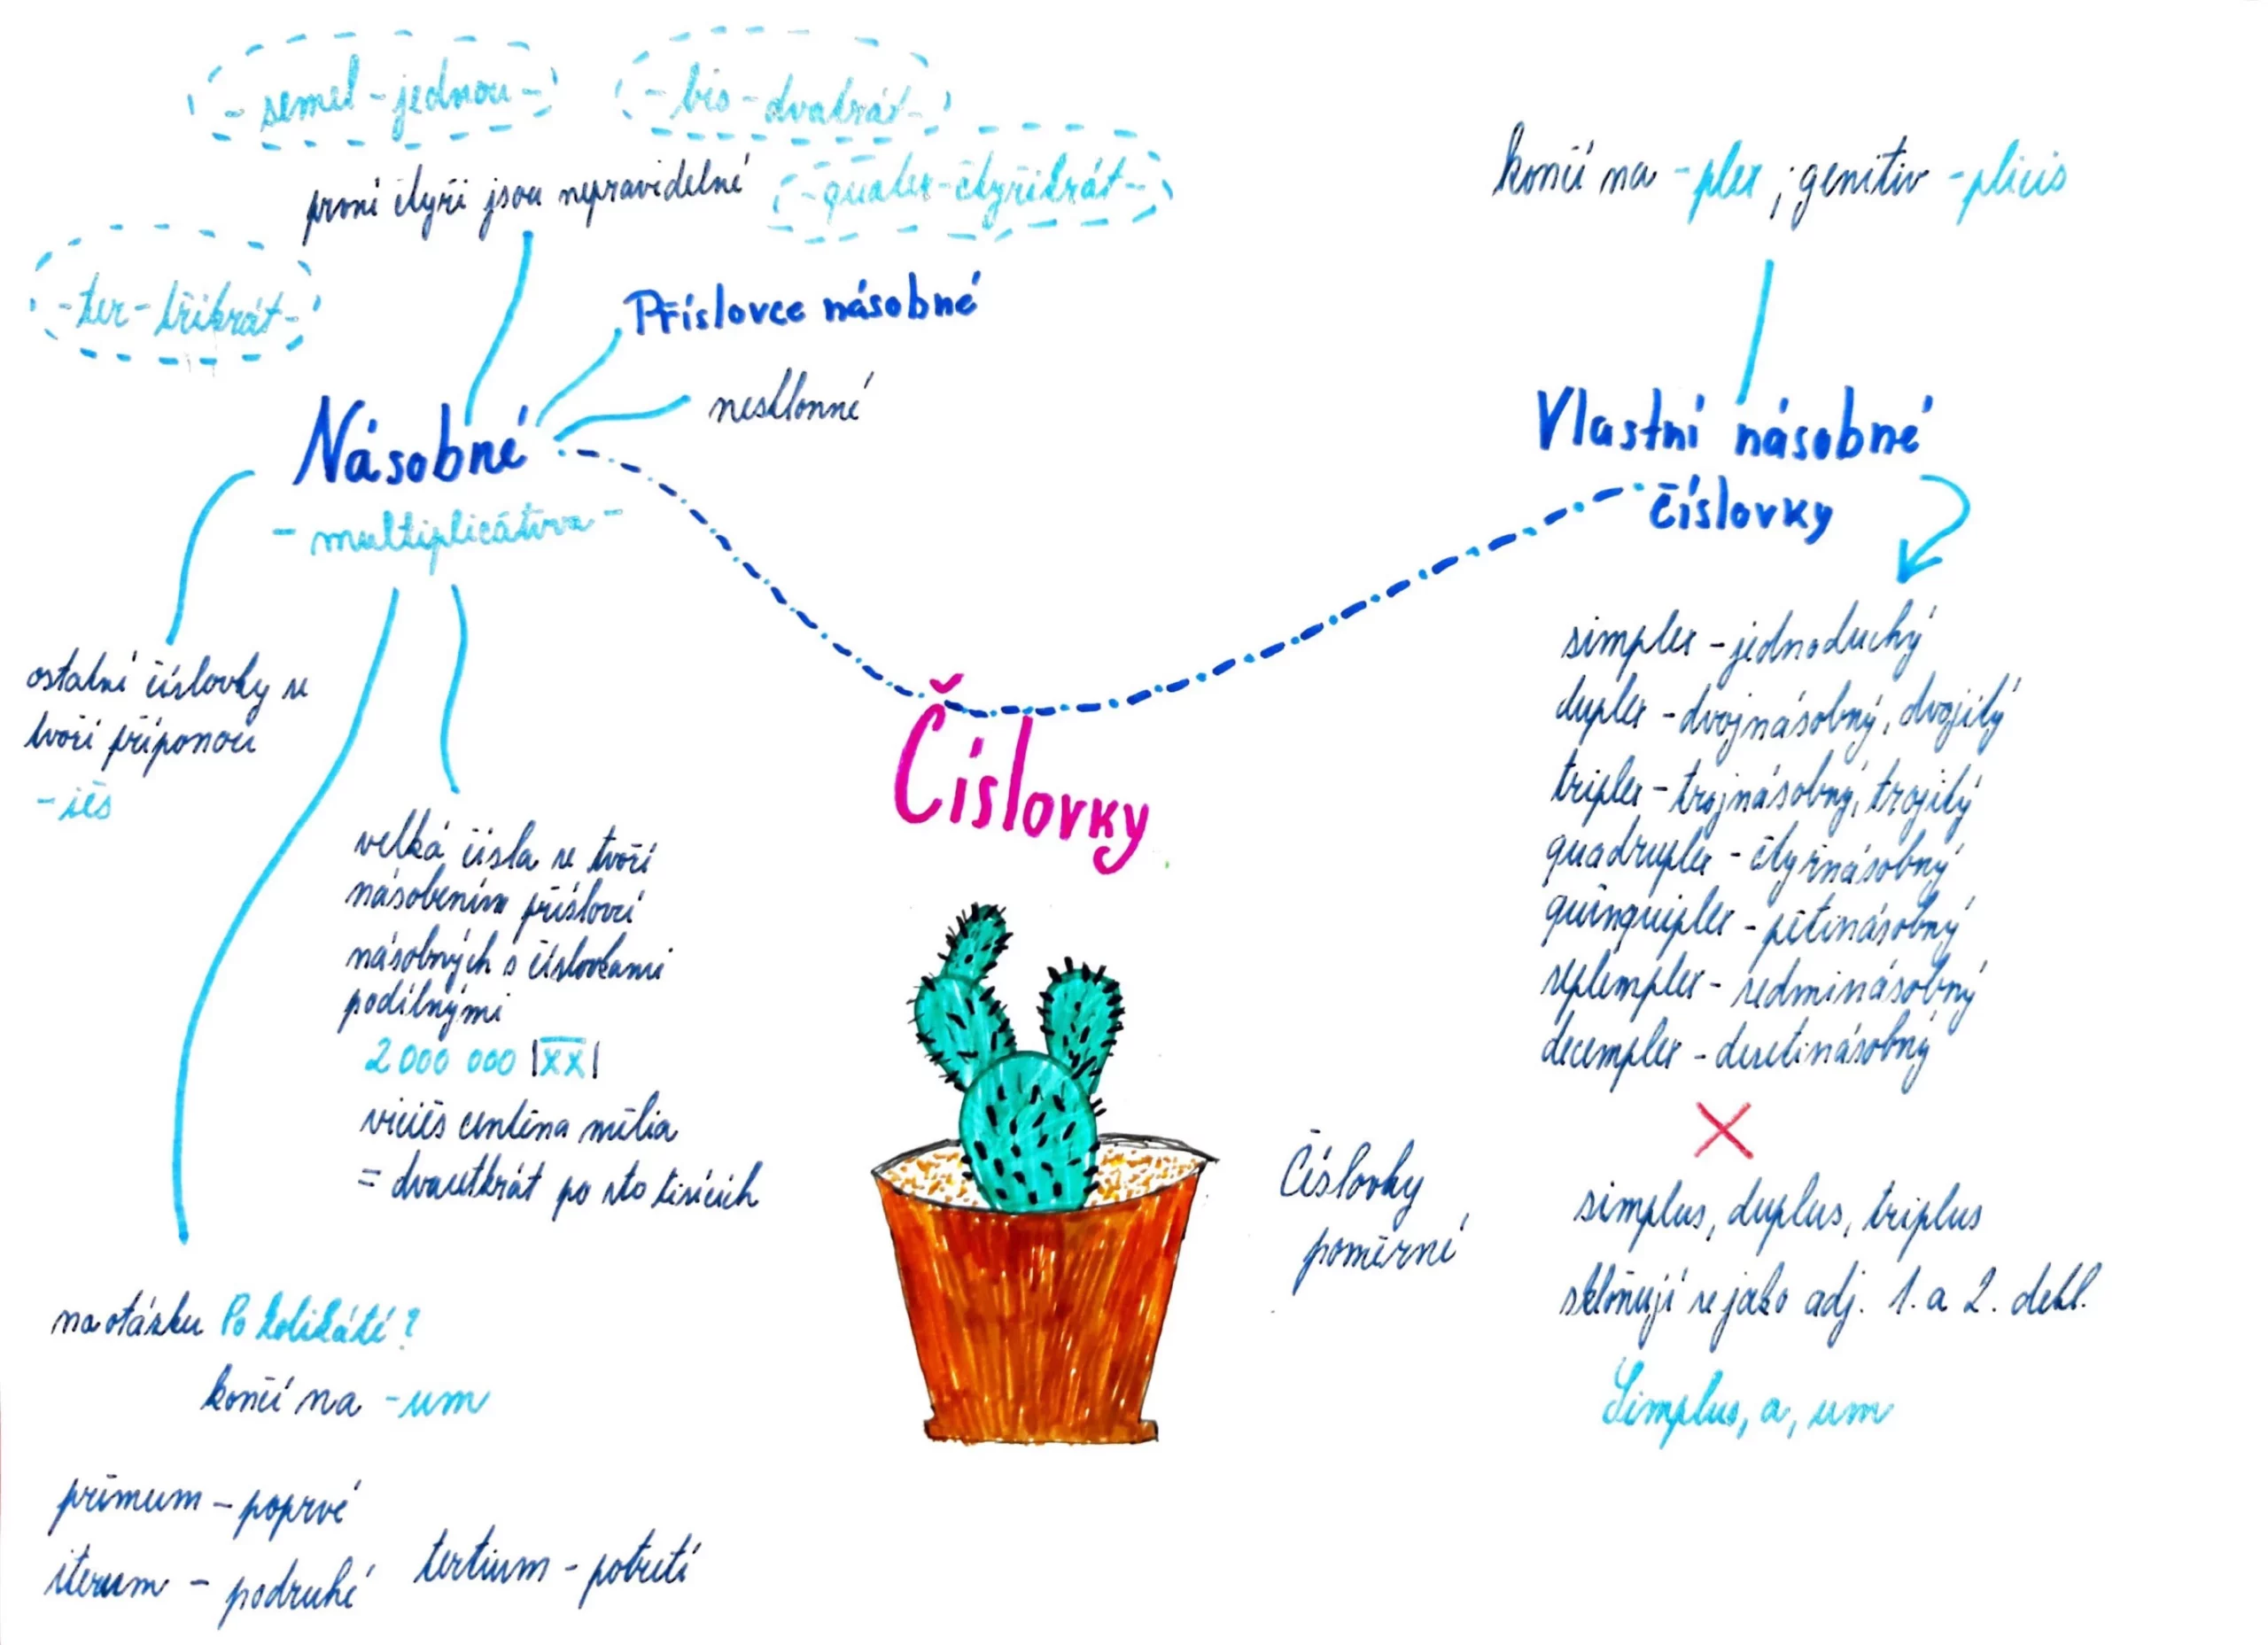 - semel - jednou -
- bis - dvakrát -
první čtyři jsou nepravidelné
- quater - čtyřikrát -
- ter - třikrát -
Příslovce násobné
nesklonné
Násobné
- multiplicātīva -
ostatní číslovky se
tvoří příponou
- iēs
velká čísla se tvoří
násobením příslovcí
násobných s číslovkami
podílnými
2 000 000 |XX|
viciēs centēna mīlia
= dvacetkrát po sto tisících
na otázku Po kolikáté?
končí na -um
prīmum - poprvé
iterum - podruhé
tertium - potřetí
Číslovky
končí na -plex ; genitiv -plicis
Vlastní násobné
číslovky
simplex - jednoduchý
duplex - dvojnásobný, dvojitý
triplex - trojnásobný, trojitý
quadruplex - čtyřnásobný
quīnquiplex - pětinásobný
septemplex - sedminásobný
decemplex - desetinásobný
Číslovky
poměrné
simplus, duplus, triplus
skloňují se jako adj. 1. a 2. dekl.
Simplus, a, um